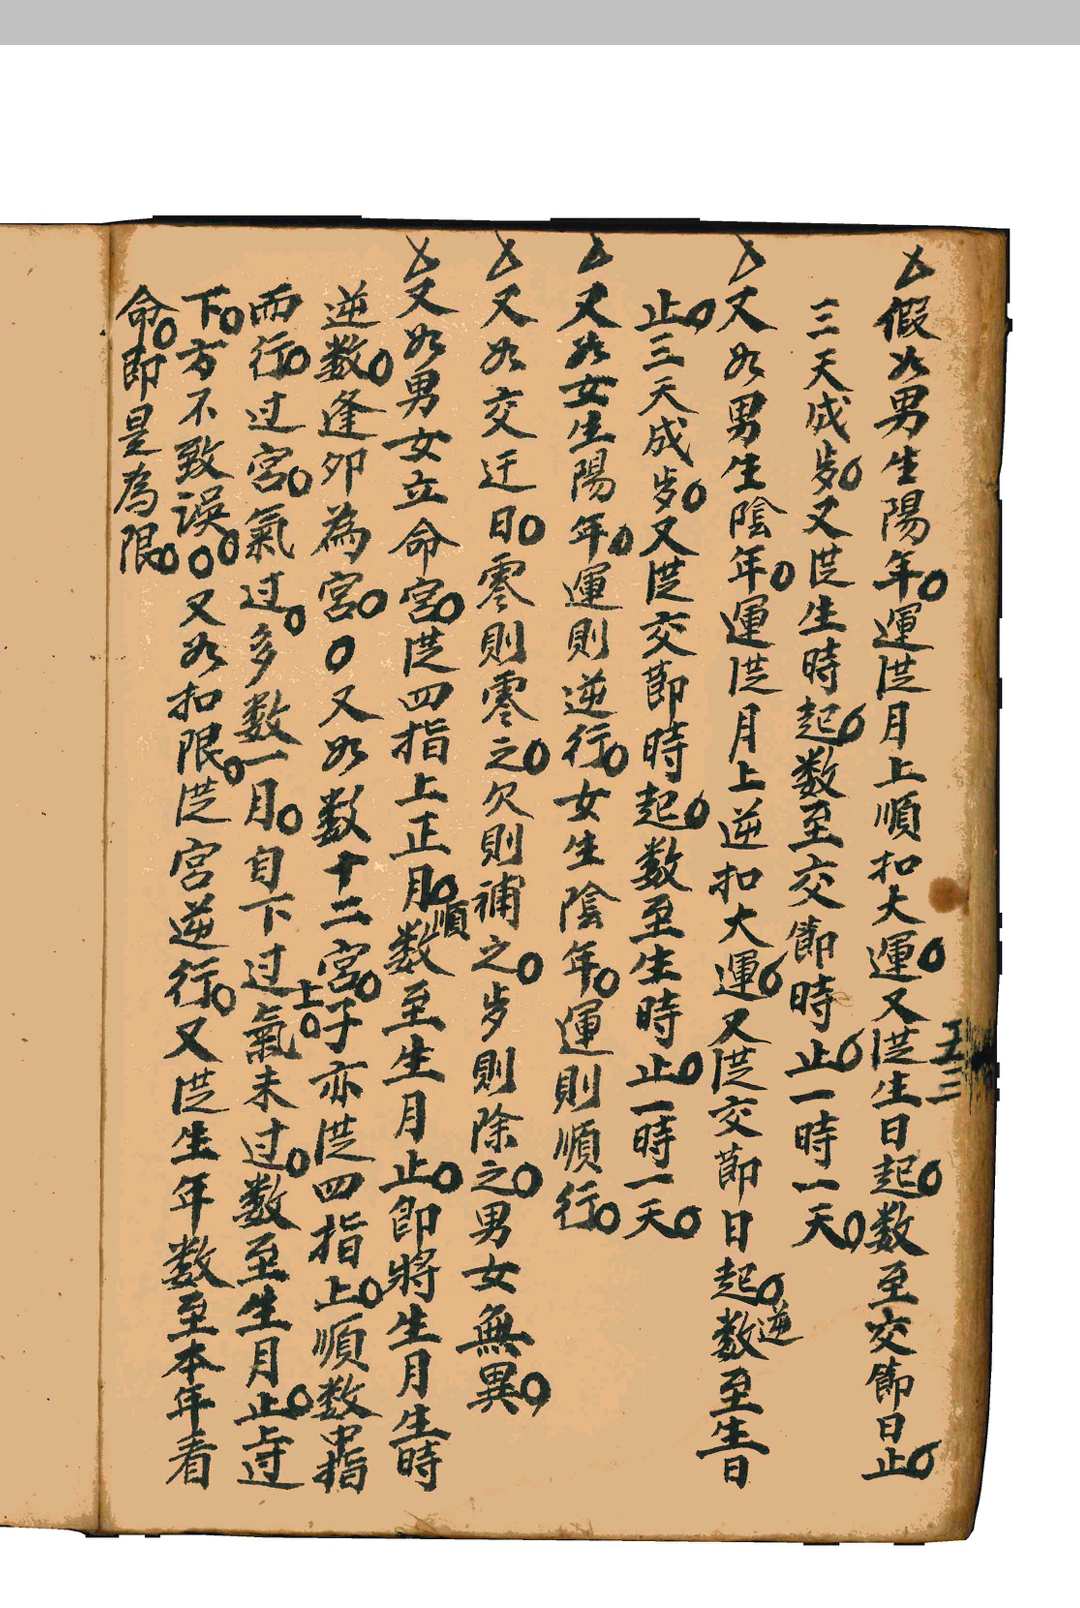 假如男生陽年。運從月上順扣大運。又從生日起。数至交節日止。
三天成歩。又從生時起。数至交節時止。一時一天。
又如男生陰年。運從月上逆扣大運。又從交節日起。逆数至生日
止。三天成歩。又從交節時起。数至生時止。一時一天。
又如女生陽年。運則逆行。女生陰年。運則順行。
又如交迋日。零則零之。欠則補之。歩則除之。男女無異。
又如男女立命宮。從四指上正月。順数至生月止。即將生月生時
逆数。逢卯為宮。〇又如数十二宮。子亦從四指上。順数中指
而行。过宮。氣过。多数一月。自下过上。氣未过。数至生月止。上过
下。方不致误。〇又如扣限。從宮逆行。又從生年数至本年看
命。即是為限。
五三